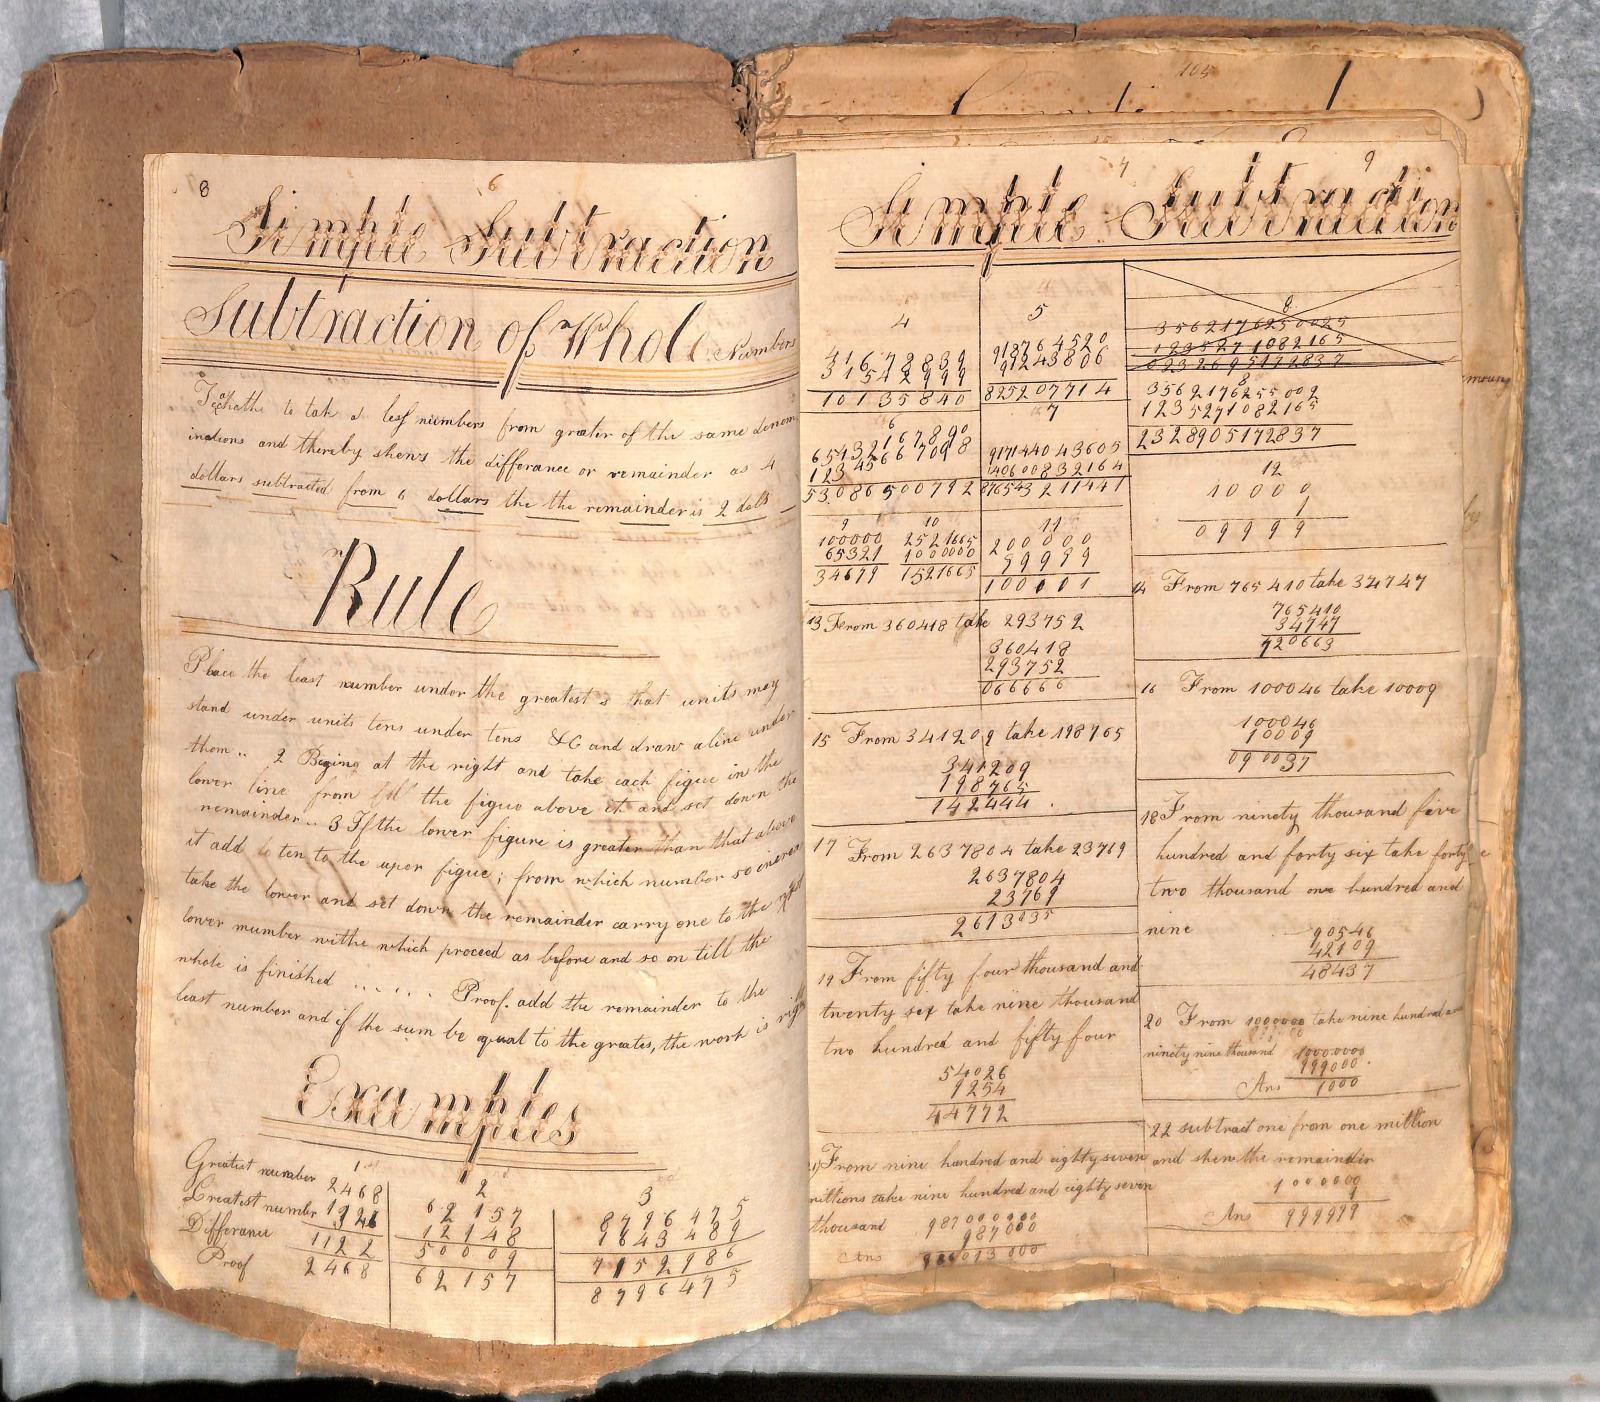 8
6
Simple Subtraction
Subtraction of Whole Numbers
Teachathe to tak a less numbers from greater of the same denom
inations and thereby shews the differance or remainder as 4
dollars subtracted from 6 dollars the the remainder is 2 dolls
Rule
Place the least number under the greatest s that units may
stand under units tens under tens &C and draw a line under
them .. 2 Beging at the right and take each figue in the
lower line from the figue above it and set down the
remainder .. 3 If the lower figure is greater than that above
it add to ten to the uper figue; from which number so increa
take the lower and set down the remainder carry one to the next
lower number withe which proceed as before and so on till the
whole is finished ...... Proof. add the remainder to the
least number and if the sum be equal to the greates, the work is righ
Examples
1 2 3
Greatist number 2468 62157 8796475
Lreatest number 1346 12148 1643489
Differance 1122 50009 7152986
Proof 2468 62157 8796475
105
7
9
Simple Subtraction
4
31672839
31542999
10135840
5
91764520
91243806
825207714
8
3562176250025
1235271082165
8
3562176255002
1235271082165
2328905172837
6
65432167890
123456670998
53086500792
7
917144043605
40600832164
876543211441
9
100000
65321
34679
10
2521665
1000000
1521665
11
200000
99999
100001
12
10000
1
09999
13 From 360418 take 293752
360418
293752
066666
14 From 765410 take 34747
765410
34747
720663
15 From 341209 take 198765
341209
198765
142444 .
16 From 100046 take 10009
100046
10009
090037
17 From 2637804 take 23769
2637804
23769
2613035
18 From ninety thousand five
hundred and forty six take forty
two thousand one hundred and
nine
90546
42109
48437
19 From fifty four thousand and
twenty six take nine thousand
two hundred and fifty four
54026
9254
44772
20 From 1000000 take nine hundred an
ninety nine thousand
1000000
999000
Ans 1000
21 From nine hundred and eighty seven
millions take nine hundred and eighty seven
thousand
987000000
987000
Ans 986013000
22 subtract one from one million
and shew the remainder
1000000
1
Ans 999999